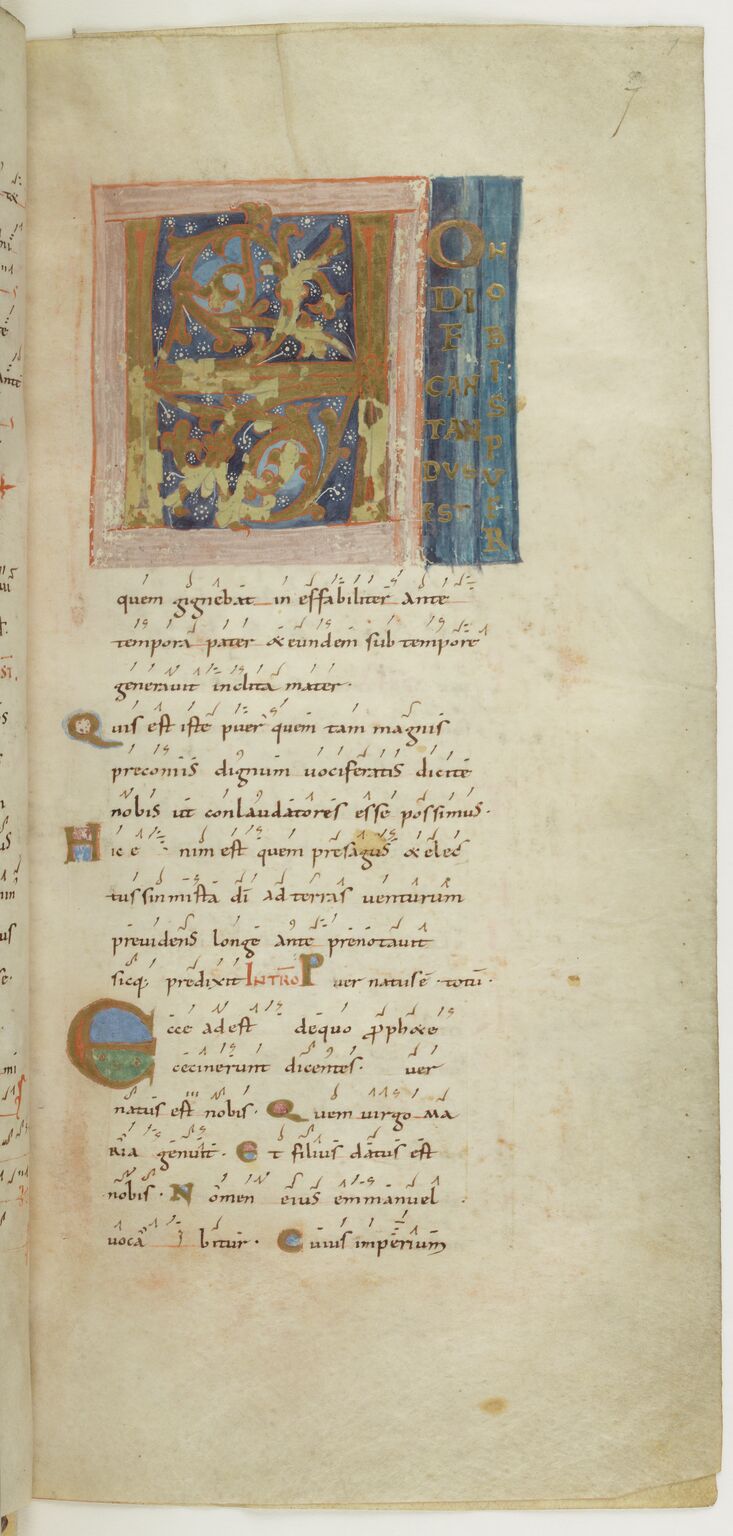 7
H O
DI
E
CAN
TAN
DVS
EST
NOBIS PVER
quem gignebat in effabiliter ante
tempora pater & eundem sub tempore
generavit inclita mater.
Quis est iste puer quem tam magnis
preconiis dignum vociferatis dicite
nobis ut conlaudatores esse possimus.
Hic e nim est quem presagus & elec
tus sinmista di ad terras venturum
previdens longe ante prenotavit
sicq; predixit INTRO Puer natus ē totū.
Ecce adest de quo pphae
cecinerunt dicentes. uer
natus est nobis. Quem virgo MA
RIA genuit. Et filius datus est
nobis. Nomen eius emmanuel
voca bitur. Cuius imperium